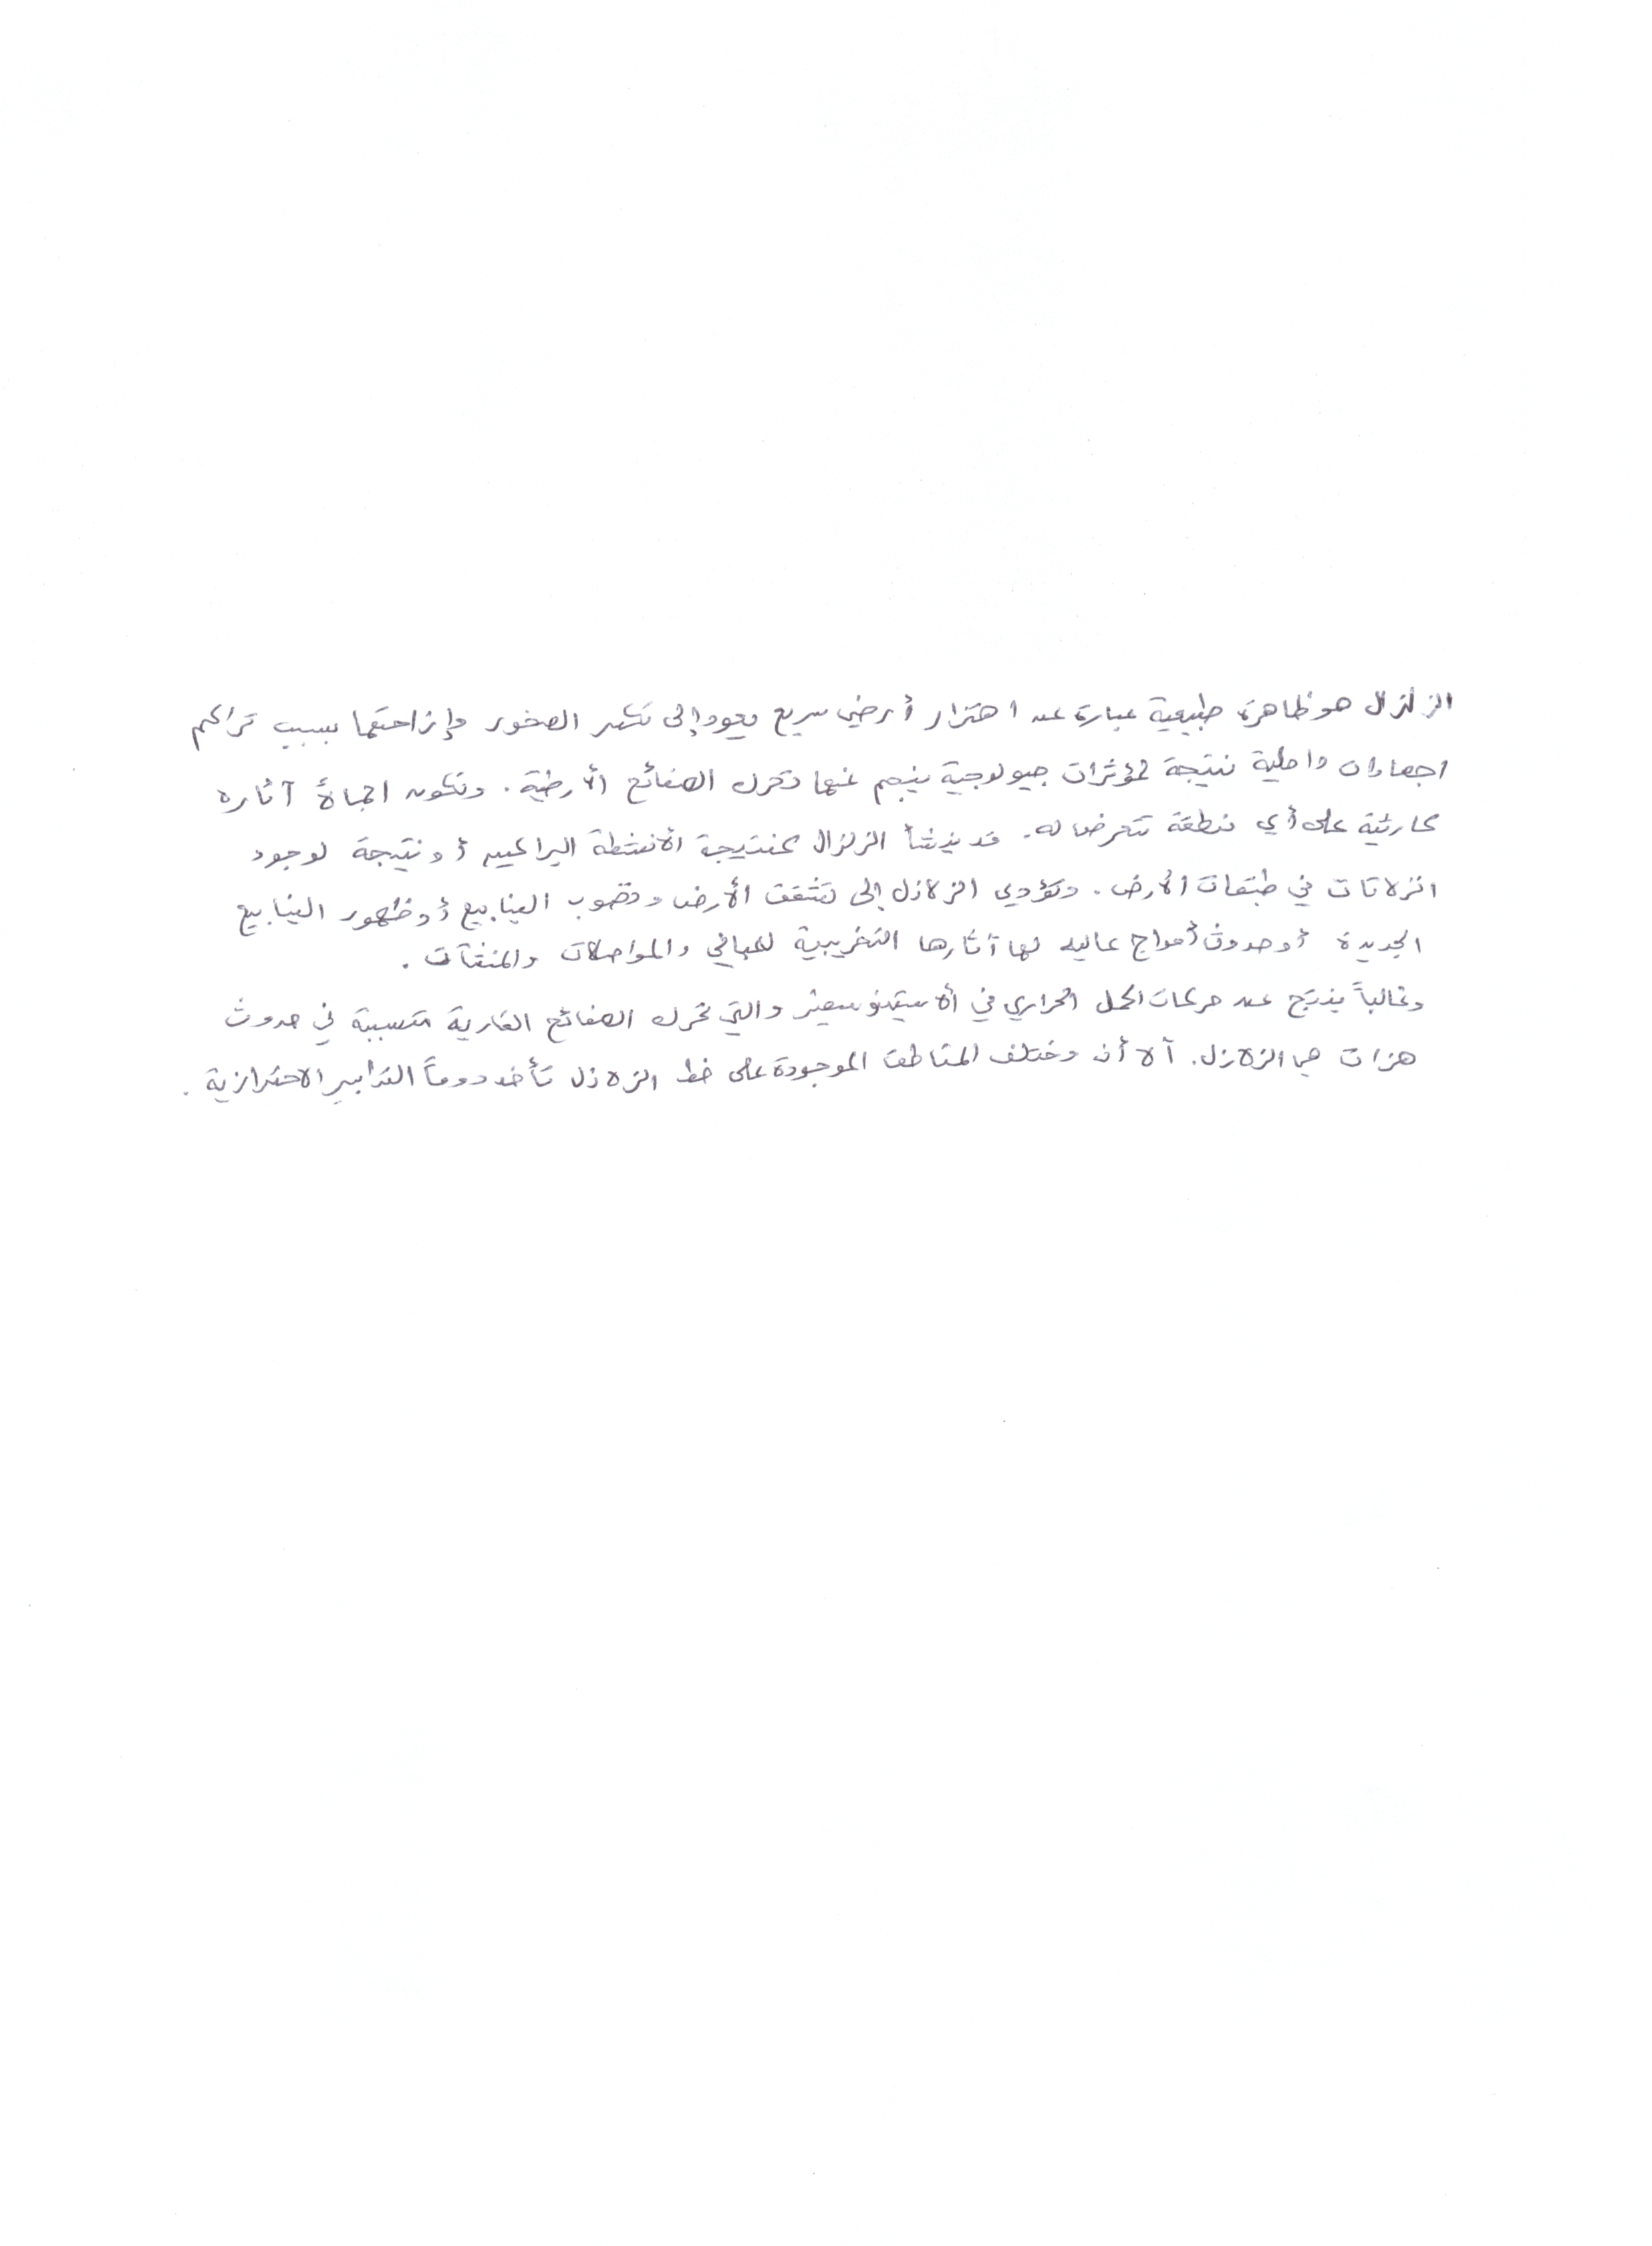 الزلزال هو ظاهرة طبيعية عبارة عن اهتزاز أرضي سريع يعود إلى تكسر الصخور وإزاحتها بسبب تراكم
اجهادات داخلية نتيجة لمؤثرات جيولوجية ينجم عنها تحرك الصفائح الأرضية. وتكون آثاره
كارثية على أي منطقة تتعرض له. قد ينشأ الزلزال كنتيجة لأنشطة البراكين أو نتيجة لوجود
انزلاقات في طبقات الأرض. وتؤدي الزلازل إلى تشقق الأرض ونضوب الينابيع أو ظهور الينابيع
الجديدة أو حدوث أمواج عالية لها آثارها التخريبية للمباني والمواصلات والمنشآت.
وغالباً ينتج عن حركات الحمل الحراري في والتي تحرك الصفائح القارية متسببة في حدوث
هزات هي الزلازل. ألا أن مختلف المناطق الموجودة على خط الزلازل تأخذ دوماً التدابير الاحترازية.